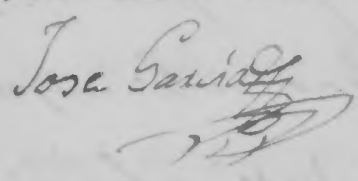 Jose Garcia